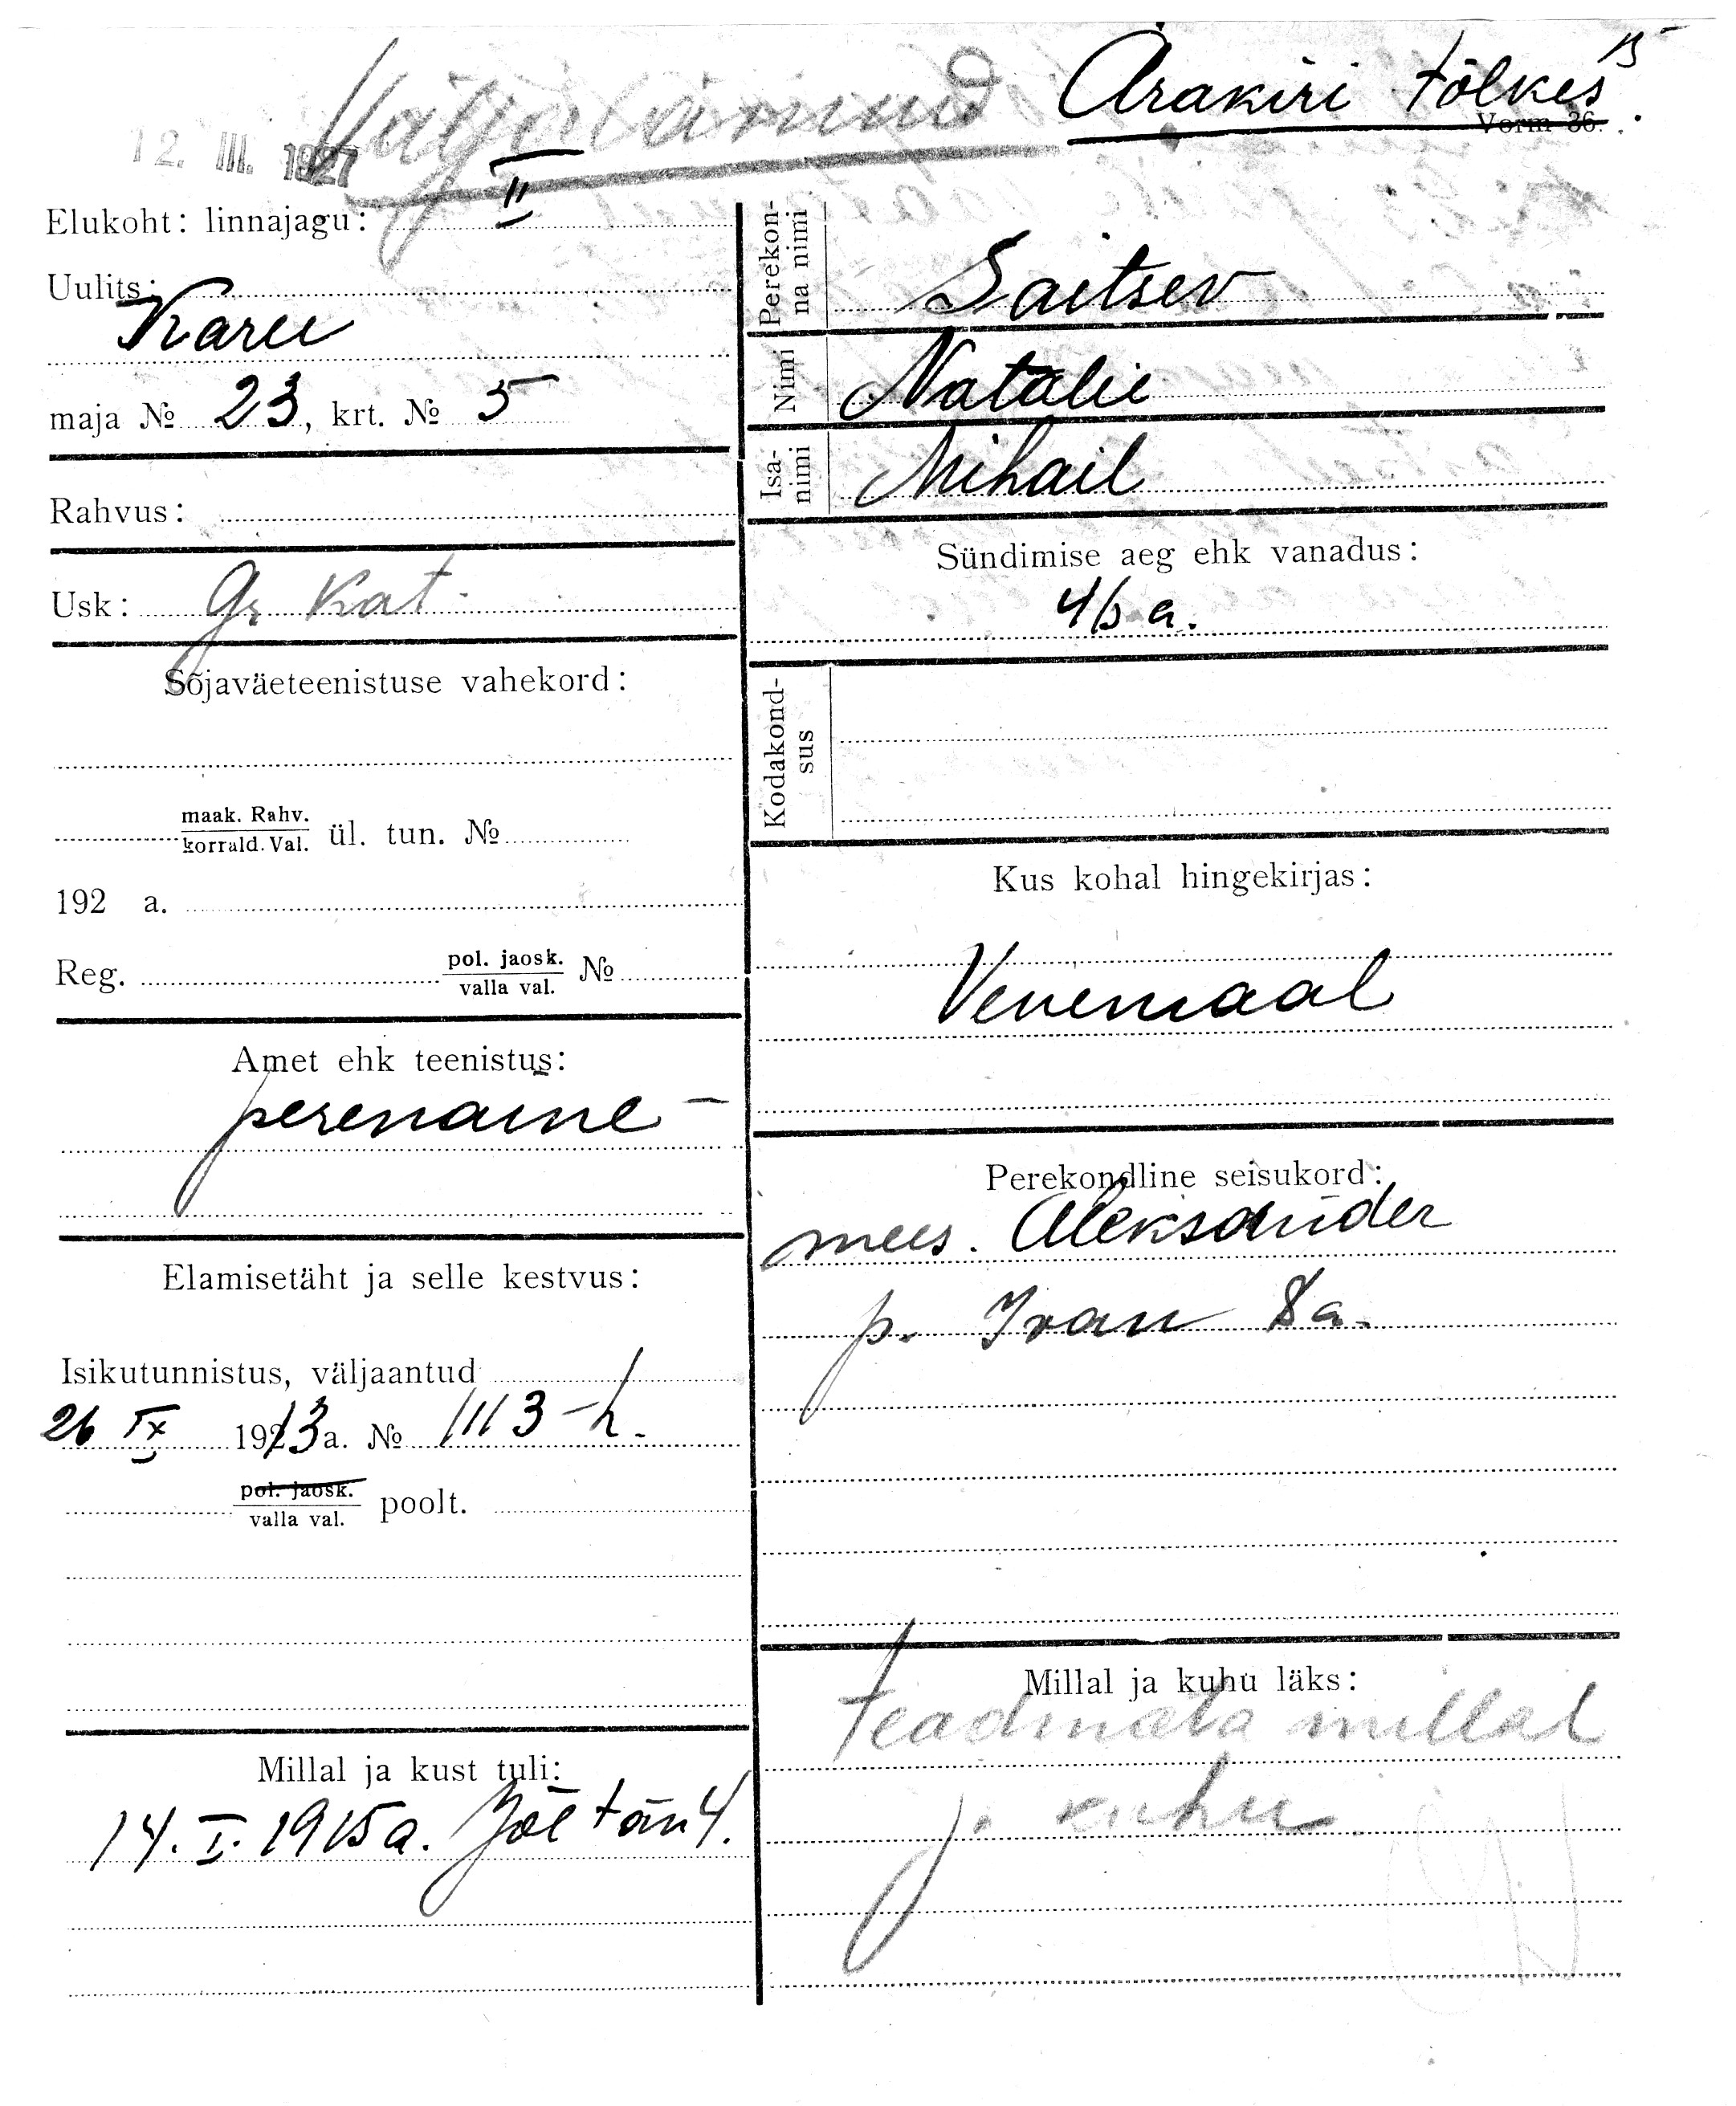 15
Ärakiri tõlkes.
Väljaläinud
12. III. 1927
Vorm 36.
Elukoht: linnajagu: II
Uulits:
Karu
maja № 23, krt. № 5
Rahvus:
Usk: Gr Kat.
Sõjaväeteenistuse vahekord:
maak. Rahv.
korrald. Val. ül. tun. №
192 a.
Reg. pol. jaosk. №
valla val.
Amet ehk teenistus:
perenaine –
Elamisetäht ja selle kestvus:
Isikutunnistus, väljaantud
26 IX 1923 a. № 1113-h.
pol. jaosk.
valla val. poolt.
Millal ja kust tuli:
14. I. 1915 a. Jõe tän 4.
Perekon-
na nimi
Saitsev
Nimi
Natalie
Isa-
nimi
Mihail
Sündimise aeg ehk vanadus:
a.
Kodakond-
sus
Kus kohal hingekirjas:
Venemaal
Perekondline seisukord:
mees. Aleksander
p. Ivan 8 a.
Millal ja kuhu läks:
teadmata millal
j. kuhu